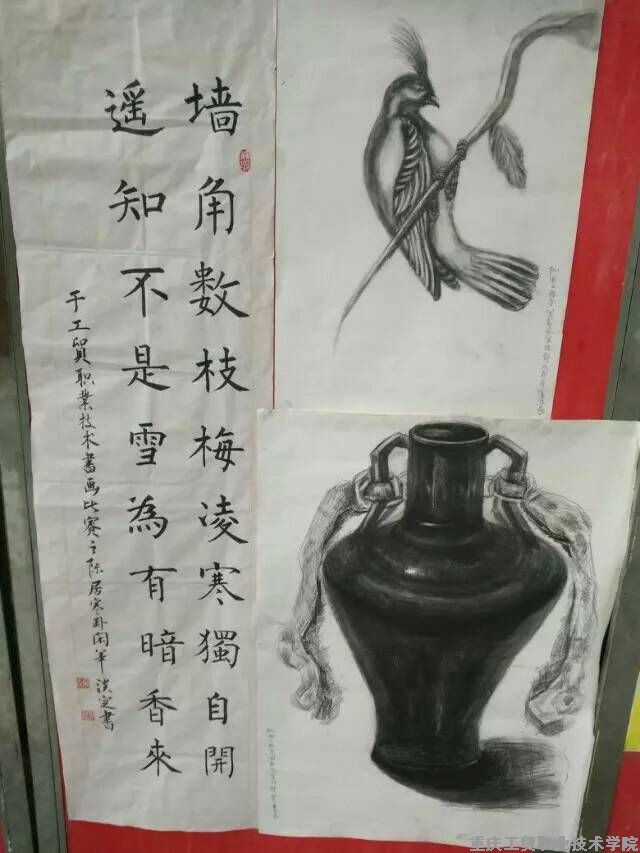 墙角数枝梅凌寒獨自開
遥知不是雪為有暗香來
于工貿职業技术書画比赛之际居寒卧闲军
淡定書
重庆工贸职业技术学院